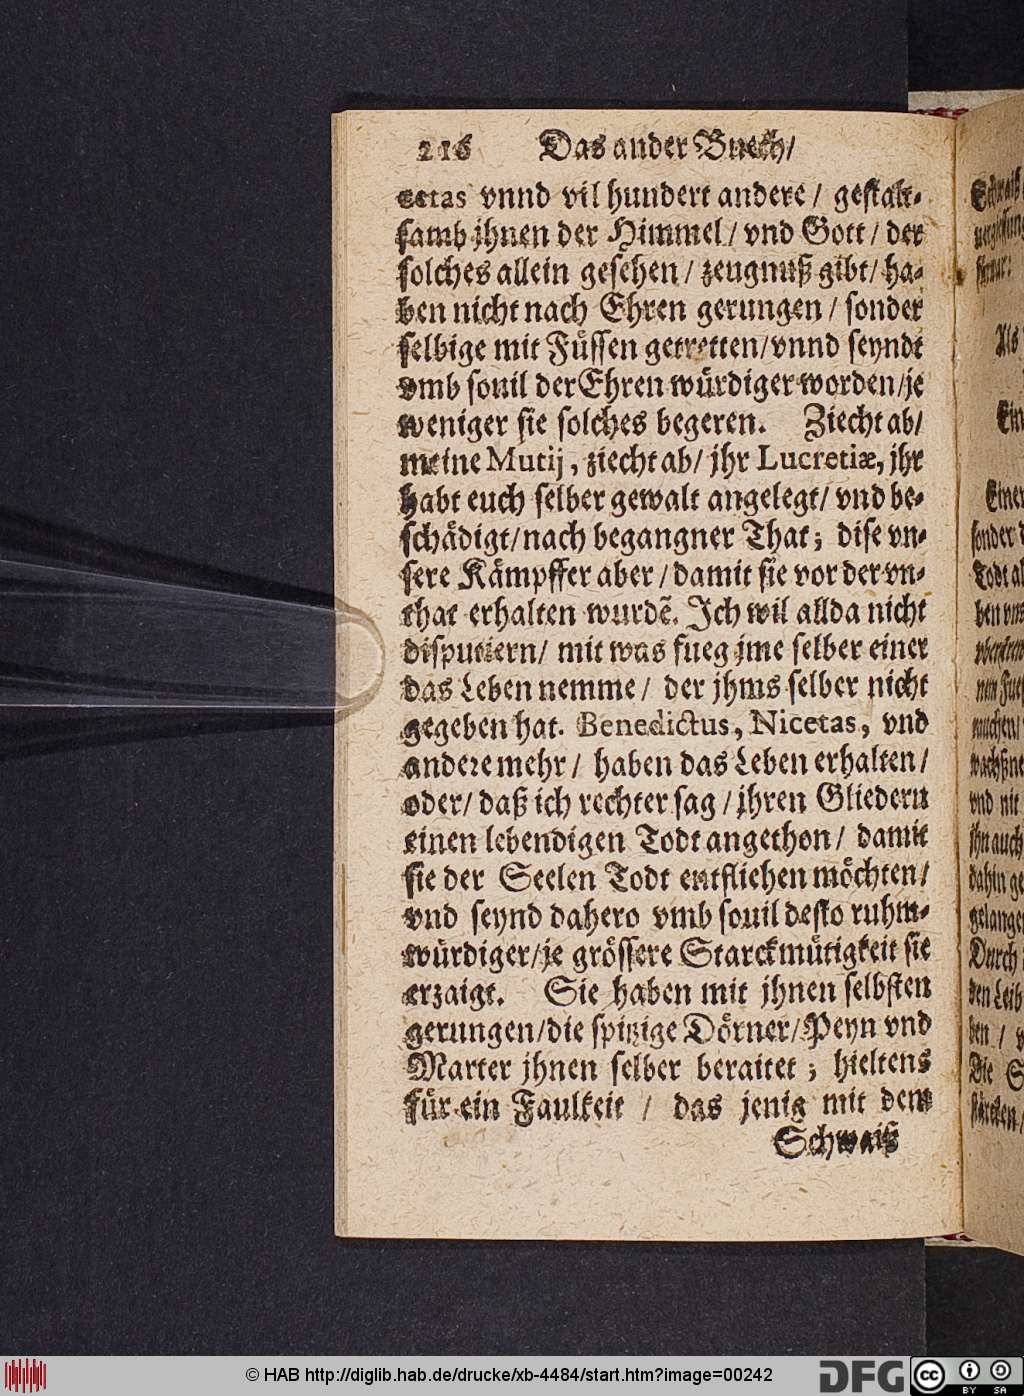 216 Das ander Buech/
cetas vnnd vil hundert andere / gestalt-
samb jhnen der Himmel / vnd Gott / der
solches allein gesehen / zeugnuß gibt / ha-
ben nicht nach Ehren gerungen / sonder
selbige mit Füssen getretten/vnnd seyndt
vmb souil der Ehren würdiger worden/je
weniger sie solches begeren. Ziecht ab/
meine Mutij, ziecht ab/ jhr Lucretiæ, jhr
habt euch selber gewalt angelegt/ vnd be-
schädigt/nach begangner That; dise vn-
sere Kämpffer aber / damit sie vor der vn-
that erhalten wurdē. Ich wil allda nicht
disputiern/ mit was fueg jme selber einer
das Leben nemme / der jhms selber nicht
gegeben hat. Benedictus, Nicetas, vnd
andere mehr / haben das Leben erhalten /
oder/ daß ich rechter sag / jhren Gliedern
einen lebendigen Todt angethon / damit
sie der Seelen Todt entfliehen möchten/
vnd seynd dahero vmb souil desto ruhm-
würdiger/je grössere Starckmütigkeit sie
erzaigt. Sie haben mit jhnen selbsten
gerungen/die spitzige Dörner/Peyn vnd
Marter jhnen selber beraitet ; hieltens
für ein Faulkeit / das jenig mit dem
Schwaiß
© HAB http://diglib.hab.de/drucke/xb-4484/start.htm?image=00242
DFG
cc BY SA